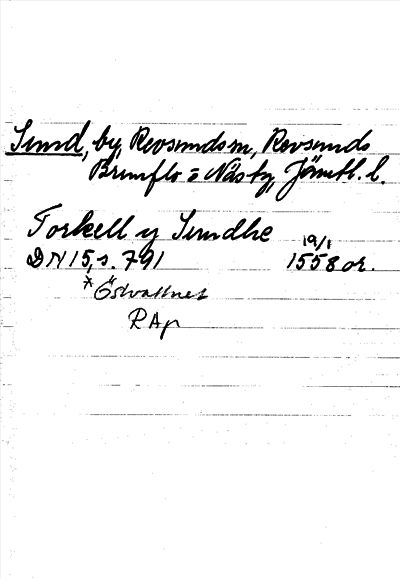 Sund, by, Revsunds sn, Revsunds
Brunflo o Näs tg, Jämtl. l.
Torkell y Sundhe
19/1
DN 15, s. 791 1558 or.
* Östvattnet
RAp